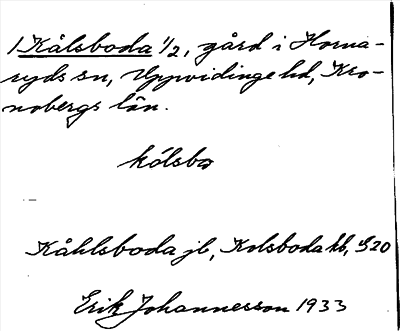 1 Kålsboda 1/2, gård i Horna-
ryds sn, Uppvidinge hd, Kro-
nobergs län.
kålsbo
Kåhlsboda jb, Kolsboda kb, S20
Erik Johannesson 1933